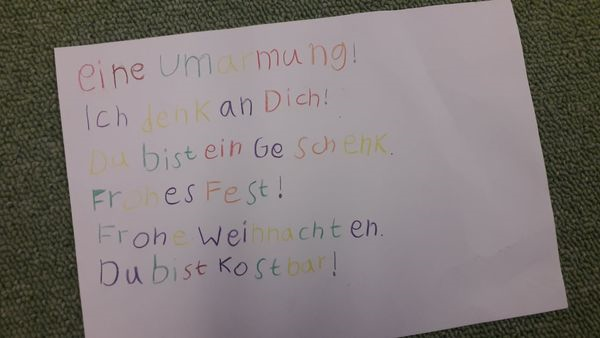 eine Umarmung!
Ich denk an Dich!
Du bist ein Geschenk.
Frohes Fest!
Frohe Weihnachten.
Du bist Kostbar!